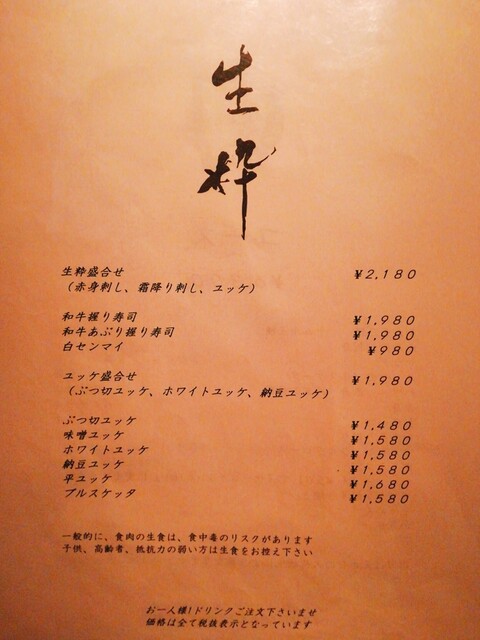 生粋
生粋盛合せ ¥2,180
（赤身刺し、霜降り刺し、ユッケ）
和牛握り寿司 ¥1,980
和牛あぶり握り寿司 ¥1,980
白センマイ ¥980
ユッケ盛合せ ¥1,980
（ぶつ切ユッケ、ホワイトユッケ、納豆ユッケ）
ぶつ切ユッケ ¥1,480
味噌ユッケ ¥1,580
ホワイトユッケ ¥1,580
納豆ユッケ ¥1,580
平ユッケ ¥1,680
ブルスケッタ ¥1,580
一般的に、食肉の生食は、食中毒のリスクがあります
子供、高齢者、抵抗力の弱い方は生食をお控え下さい
お一人様1ドリンクご注文下さいませ
価格は全て税抜表示となっています